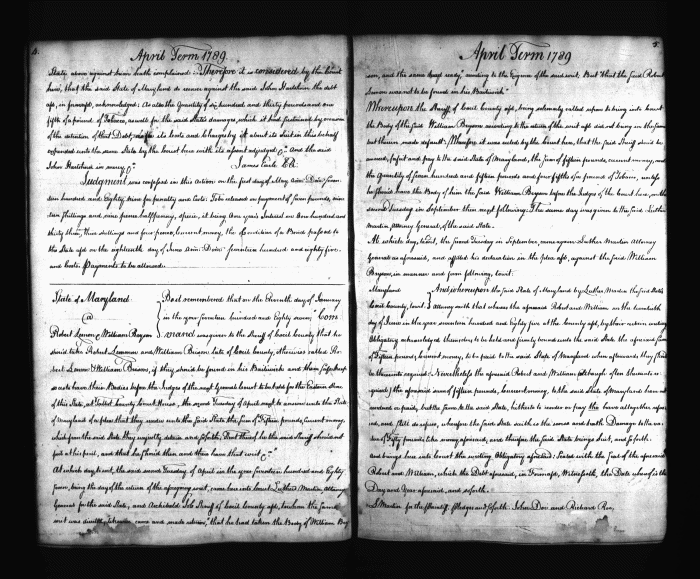 4.
April Term 1789
State, above against him hath complained: Therefore it is considered by the Court
here, that the said State of Maryland do recover against the said John Hutchins the debt
aft, in form aft, acknowledged: As also the Quantity of six hundred and thirty pounds and one
fifth of a pound of Tobacco, awards for the said State's damages, which it had sustained by occasion
of the detention of that Debt, its Costs and Charges by it about its Suit in this behalf
expended unto the same State by the Court here with its assent adjudged: And the said
John Hutchins in mercy &c. James Earle Clk.
Judgment was confessed in this Action on the first day of May Anno Domini Seven-
teen hundred and Eighty Nine for penalty and Costs. To be released on payment of Seven pounds, nine-
teen Shillings and nine pence half penny, specie, it being One years Interest on One hundred and
thirty three, three Shillings and four pence, Current money, the Condition of a Bond passed to
the State aft on the eighteenth day of June Anno Domini Seventeen hundred and eighty five.
and Costs. Payments to be allowed.
State of Maryland
@
Robert Lemon & William Bryson
Be it remembered that on the Eleventh day of January
in the year seventeen hundred and Eighty nine, Com
mand was given to the Sheriff of Cecil County, that he
should take Robert Lemmon and William Bryson late of Cecil County, otherwise called Ro-
bert Lemon & William Bryson, if they should be found in his Bailiwick and them safe keep
so as to have their Bodies before the Judges of the next General Court to be held for the Eastern Shore
of this State, at Talbot County Court House, the second Tuesday of April next, to answer unto the State
of Maryland of a plea that they render unto the said State the Sum of Fifteen pounds, Current money,
which from the said State they unjustly detain and so forth, And that he the said Sheriff should not
fail at his peril, and that he should then and there have that writ &c.
At which day to wit, the said second Tuesday of April in the year seventeen hundred and Eighty
four, being the day of the return of the aforegoing writ, came here into Court Luther Martin Attorney
General for the said State, and Archibald Job Sheriff of Cecil County aft, to whom the same
writ was directed, likewise came and made return, that he had taken the Body of William Bry
5.
April Term 1789
son, and the same kept ready according to the Exigence of the said writ. But that the said Robert
Lemon was not to be found in his Bailiwick.
Whereupon the Sheriff of Cecil County aft, being solemnly called upon to bring into Court
the Body of the said William Bryson according to the return of the writ aft did not bring in the same
but therein made default; Therefore it was ruled by the Court here, that the said Sheriff should be
amerced, forfeit and pay to the said State of Maryland, the sum of fifteen pounds, current money, and
the Quantity of Seven hundred and fifteen pounds and four fifths of a pound of Tobacco, unless
he should have the Body of him the said William Bryson before the Judges of the Court here, on the
second Tuesday in September then next following: The same day was given to the said Luther
Martin, Attorney General, of the said State.
At which day, to wit, the second Tuesday in September, came again Luther Martin Attorney
General as aforesaid, and affiled his declaration in the plea aft, against the said William
Bryson, in manner and form following, to wit:
Maryland
Cecil County, to wit,
And whereupon the said State of Maryland by Luther Martin the said State's
Attorney saith that whereas the aforesaid Robert and William on the twentieth
day of June in the year seventeen hundred and Eighty five at the County aft, by their certain writing
Obligatory acknowledged themselves to be held and firmly bound unto the said State the aforesaid Sum
of Fifteen pounds, Current money, to be paid to the said State of Maryland when afterwards they should
be thereunto required: Nevertheless the aforesaid Robert and William (although often thereunto re-
quired) the aforesaid sum of fifteen pounds, Current money, to the said State of Maryland have not
rendered or paid, but the same to the said State, hitherto to render or pay they have altogether refu-
sed, and still do refuse, wherefore the said State saith it is the worse and hath Damage to the va-
lue of Fifty pounds like money aforesaid, and therefore the said State brings Suit, and so forth.
and brings here into Court the writing Obligatory aforesaid: Sealed with the Seal of the aforesaid
Robert and William, which the Debt aforesaid, in Form aft, Witnesseth, the Date whereof is the
Day and Year aforesaid, and so forth.
L. Martin for the plaintiff. Pledges and so forth. John Doe and Richard Roe,